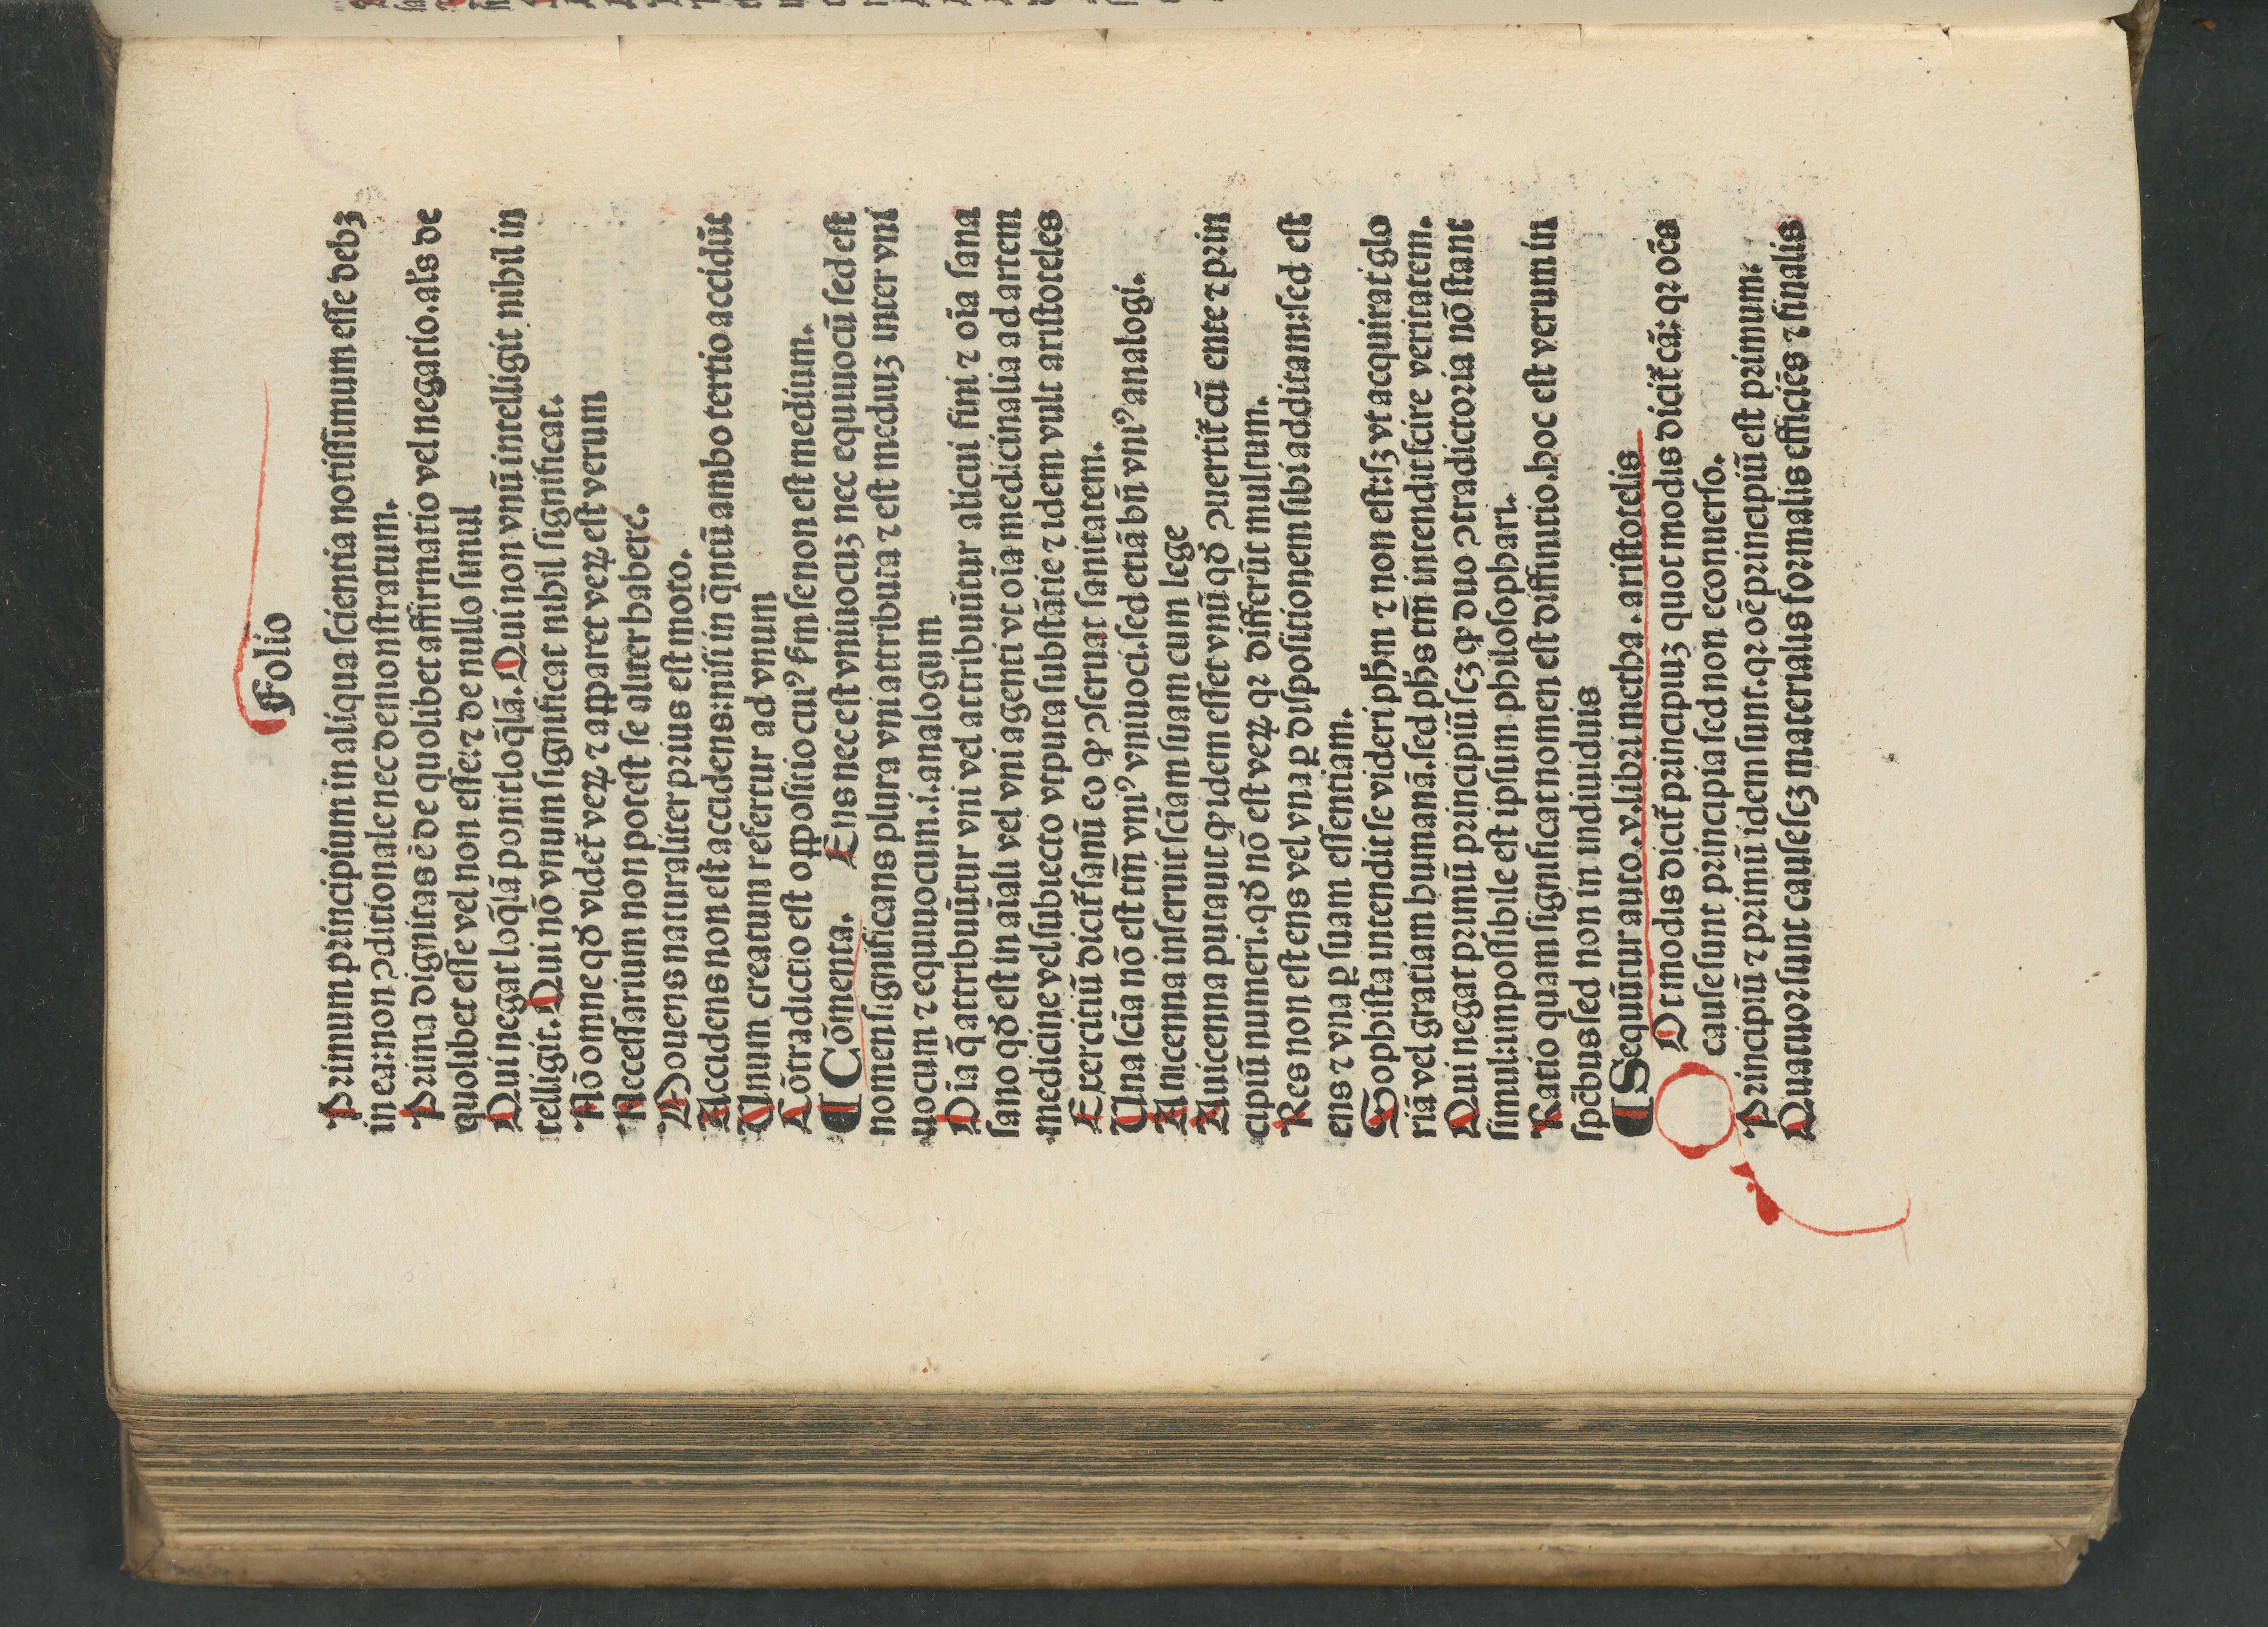 Folio
Primum principium in aliqua scientia notissimum esse debꝫ
in ea: non ↄditionale nec demonstratum.
Prima dignitas ē de quolibet affirmatio vel negatio. al's de
quolibet esse vel non esse: ⁊ de nullo simul
Qui negat loq̄lā ponit loq̄lā. Qui non vnū intelligit nihil in
telligit. Qui nō vnum significat nihil significat.
Nō omne qđ videt̄ veꝝ ⁊ apparet veꝝ est verum
Necessarium non potest se aliter habere.
Mouens naturaliter prius est moto.
Accidens non est accidens: nisi in q̄ntū ambo tertio accidūt
Unum creatum refertur ad vnum
Cōtradictio est oppositio cuiꝰ ẜm se non est medium.
¶ Cōmenta. Ens nec est vniuocuꝫ nec equiuocū sed est
nomen significans plura vni attributa ⁊ est mediuꝫ inter vni
uocum ⁊ equiuocum .i. analogum
Oīa q̄ attribuūtur vni vel attribuūtur alicui fini ⁊ oīa sana
sano qđ est in aīali vel vni agenti vt oīa medicinalia ad artem
medicine vel subiecto vtputa substātie ⁊ idem vult aristoteles
Exercitiū dicit̄ sanū eo ꝙ ↄseruat sanitatem.
Una scīa nō est tm̄ vniꝰ vniuoci. sed etiā bn̄ vniꝰ analogi.
Auicenna inseruit scīam suam cum lege
Auicenna putauit ꝙ idem esset vnū qđ ↄuertit̄ cū ente ⁊ prin
cipiū numeri. qđ nō est veꝝ qꝛ differūt multum.
Res non est ens vel vna ꝑ dispositionem sibi additam: sed est
ens ⁊ vna ꝑ suam essentiam.
Sophista intendit se videri ph̄m ⁊ non est: sꝫ vt acquirat glo
riā vel gratiam humanā. sed ph̄s tm̄ intendit scire veritatem.
Qui negat primū principiū scꝫ ꝙ duo ↄtradictoria nō stant
simul: impossibile est ipsum philosophari.
Ratio quam significat nomen est diffinitio. hoc est verum in
spēbus sed non in indiuiduis
¶ Sequūtur aucto. v. libri metha. aristotelis
Ot modis dicit̄ principiuꝫ quot modis dicit̄ cā: qꝛ oēs
cause sunt principia sed non econuerso.
Principiū ⁊ primū idem sunt. qꝛ oē principiū est primum.
Quatuor sunt cause scꝫ materialis formalis efficiēs ⁊ finalis